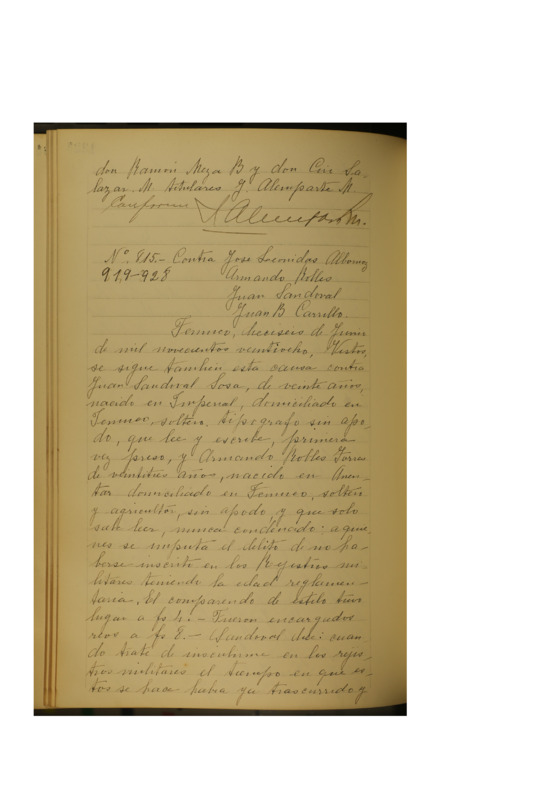 don Ramón Meza B y don Ciro Sa-
lazar M titulares J. Alemparte M.
Conforme J Alemparte M.
No. 815.- Contra José Leonidas Albornoz
919-928 Armando Robles
Juan Sandoval
Juan B Carrillo.
Temuco, dieciseis de Junio
de mil novecientos veintiocho, Vistos,
se sigue tambien esta causa contra
Juan Sandoval Sosa, de veinte años,
nacido en Imperial, domiciliado en
Temuco, soltero, tipografo sin apo-
do, que lee y escribe, primera
vez preso, y Armando Robles Torres
de veintitres años, nacido en
domiciliado en Temuco, soltero
y agricultor, sin apodo y que solo
sabe leer, nunca condenado: a quie-
nes se imputa el delito de no ha-
berse inscrito en los Rejistros mi-
litares teniendo la edad reglamen-
taria. El comparendo de estilo tuvo
lugar a fs 4.- Fueron encargados
reos a fs 8.- Sandoval dice: cuan-
do trate de inscribirme en los rejis-
tros militares el tiempo en que es-
tos se hace habia ya trascurrido y